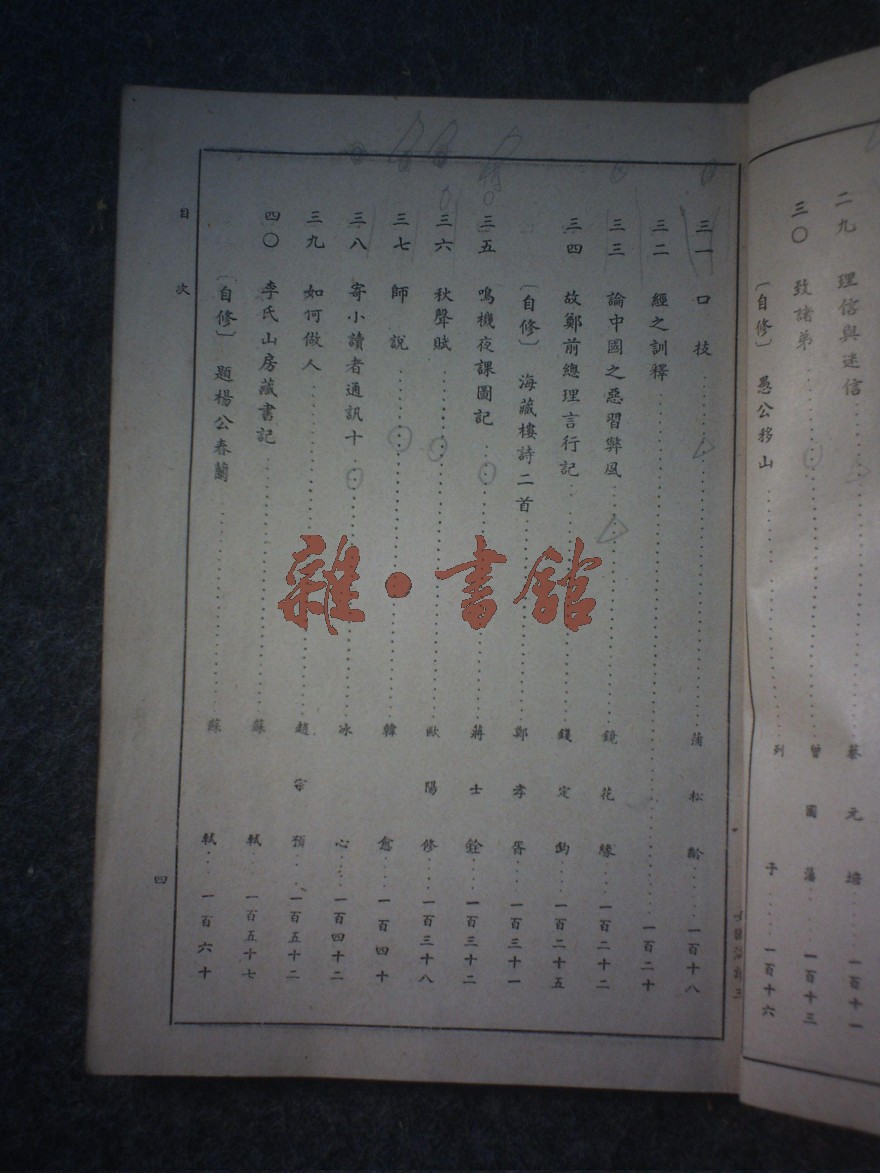 二九 理信與迷信……蔡元培……一百十一
三〇 致諸弟……曾國藩……一百十三
〔自修〕 愚公移山……列子……一百十六
三一 口技……蒲松齡……一百十八
三二 經之訓釋……一百二十
三三 論中國之惡習弊風……鏡花緣……一百二十二
三四 故鄭前總理言行記……錢定鈞……一百二十五
〔自修〕 海藏樓詩二首……鄭孝胥……一百三十一
三五 鳴機夜課圖記……蔣士銓……一百三十二
三六 秋聲賦……歐陽修……一百三十八
三七 師說……韓愈……一百四十
三八 寄小讀者通訊十……冰心……一百四十二
三九 如何做人……趙宗預……一百五十二
四〇 李氏山房藏書記……蘇軾……一百五十七
〔自修〕 題楊公春蘭……蘇軾……一百六十
目次
四
雜·書館